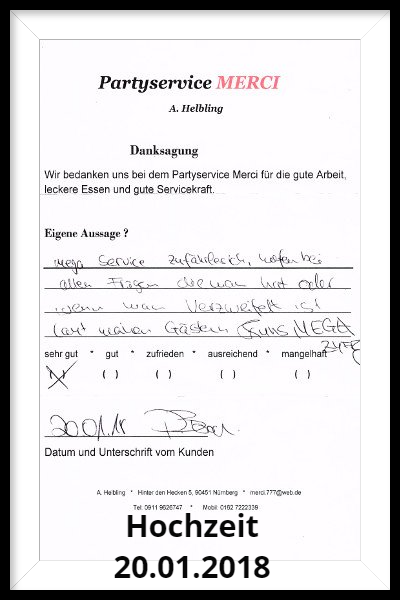 Partyservice MERCI
A. Helbling
Danksagung
Wir bedanken uns bei dem Partyservice Merci für die gute Arbeit,
leckere Essen und gute Servicekraft.
Eigene Aussage ?
mega Service zufährlesich, helfen bei
allen Fragen die man hat oder
wenn man Verzweifelt ist
laut meinen Gästen Essens MEGA
sehr gut * gut * zufrieden * ausreichend * mangelhaft
( ) ( ) ( ) ( ) ( )
20.01.18
Datum und Unterschrift vom Kunden
A. Helbling * Hinter den Hecken 5, 90451 Nürnberg * merci.777@web.de
Tel: 0911 9626747 * Mobil: 0162 7222339
Hochzeit
20.01.2018